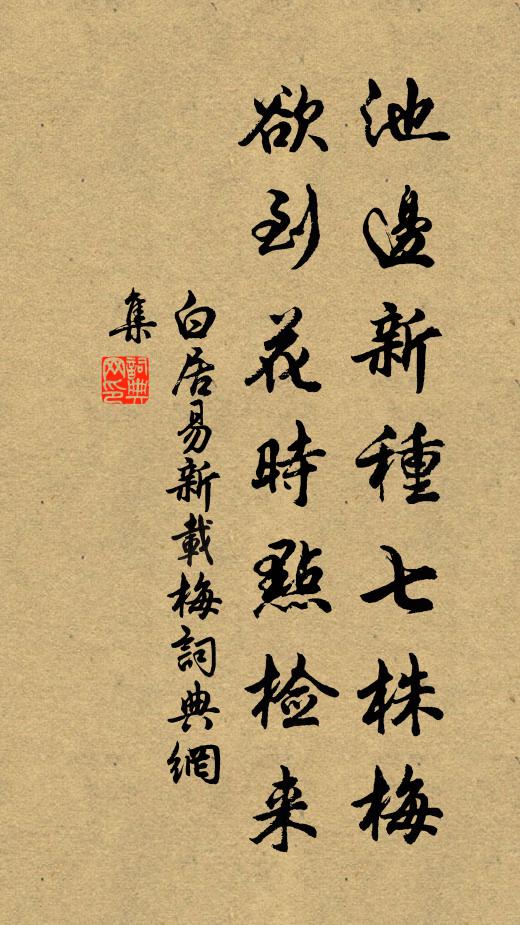 池邊新種七株梅
欲到花時點檢来
白居易新載梅詞典網
集
詞典
网印